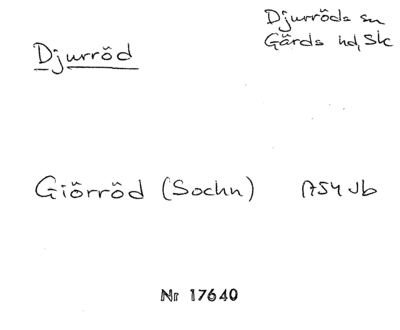 Djurröds sn
Gärds hd, Sk
Djurröd
Giörröd (Sochn) 1754 Jb
Nr 17640